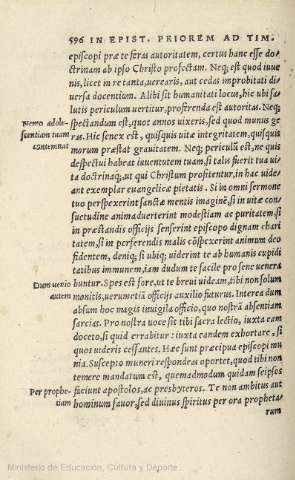 596 IN EPIST. PRIOREM AD TIM.
episcopi præ te feras autoritatem, certus hanc esse do
ctrinam ab ipso Christo profectam. Neq; est quod iuue
nis, licet in re tanta, uerearis, aut cedas improbitati di
uersa docentium. Alibi sit humanitati locus, hic ubi sa-
lutis periculum uertitur, proferenda est autoritas. Neq;
Nemo adole-
scentiam tuam
contemnat
spectandum est, quot annos uixeris, sed quod munus ge
ras. Hic senex est, quisquis uitæ integritatem, quisquis
morum præstat grauitatem. Neq; periculū est, ne quis
despectui habeat iuuentutem tuam, si talis fuerit tua ui-
ta doctrinaq;, ut qui Christum profitentur, in hac uide-
ant exemplar euangelicæ pietatis. Si in omni sermone
tuo perspexerint sanctæ mentis imaginē, si in uitæ con-
suetudine animaduerterint modestiam ac puritatem, si
in præstandis officijs senserint episcopo dignam chari
tatem, si in perferendis malis cōspexerint animum deo
fidentem, deniq; si ubiq; uiderint te ab humanis cupidi
tatibus immunem, iam dudum te facile pro sene uenera
Dum uenio
autem
buntur. Spes est fore, ut te breui uideam, tibi non solum
monitis, uerumetiā officijs auxilio futurus. Interea dum
absum hoc magis inuigila officio, quo nostrā absentiam
sarcias. Pro nostra uoce sit tibi sacra lectio, iuxta eam
doceto, si quid errabitur: iuxta eandem exhortare, si
quos uideris cessantes. Hæc sunt præcipua episcopi mu
nia. Suscepto muneri respondeas oportet, quod tibi non
temere mandatum est, quemadmodum quidam seipsos
Per prophe-
tiam
faciunt apostolos, ac presbyteros. Te non ambitus aut
hominum fauor, sed diuinus spiritus per ora propheta-
rum
Ministerio de Educación, Cultura y Deporte